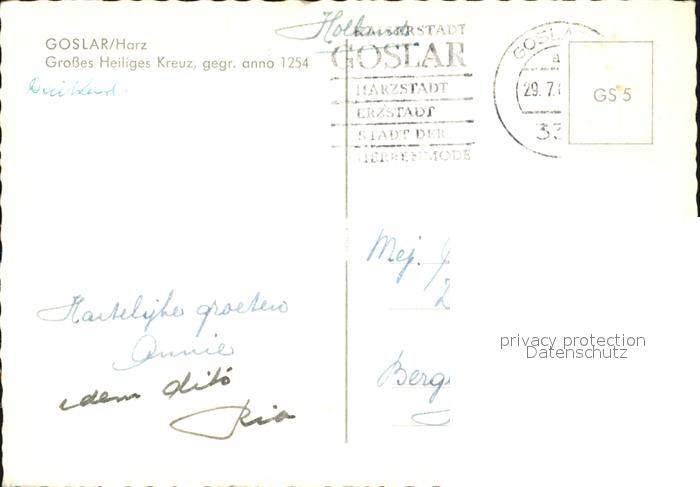 GOSLAR/Harz
Großes Heiliges Kreuz, gegr. anno 1254
Holland
KAISERSTADT
GOSLAR
HARZSTADT
ERZSTADT
STADT DER
HERRENMODE
GOSLA
a
29.7.
33
GS 5
Hartelijke groeten
Annie
idem dito
Ria
Mej. J
Berg
privacy protection
Datenschutz